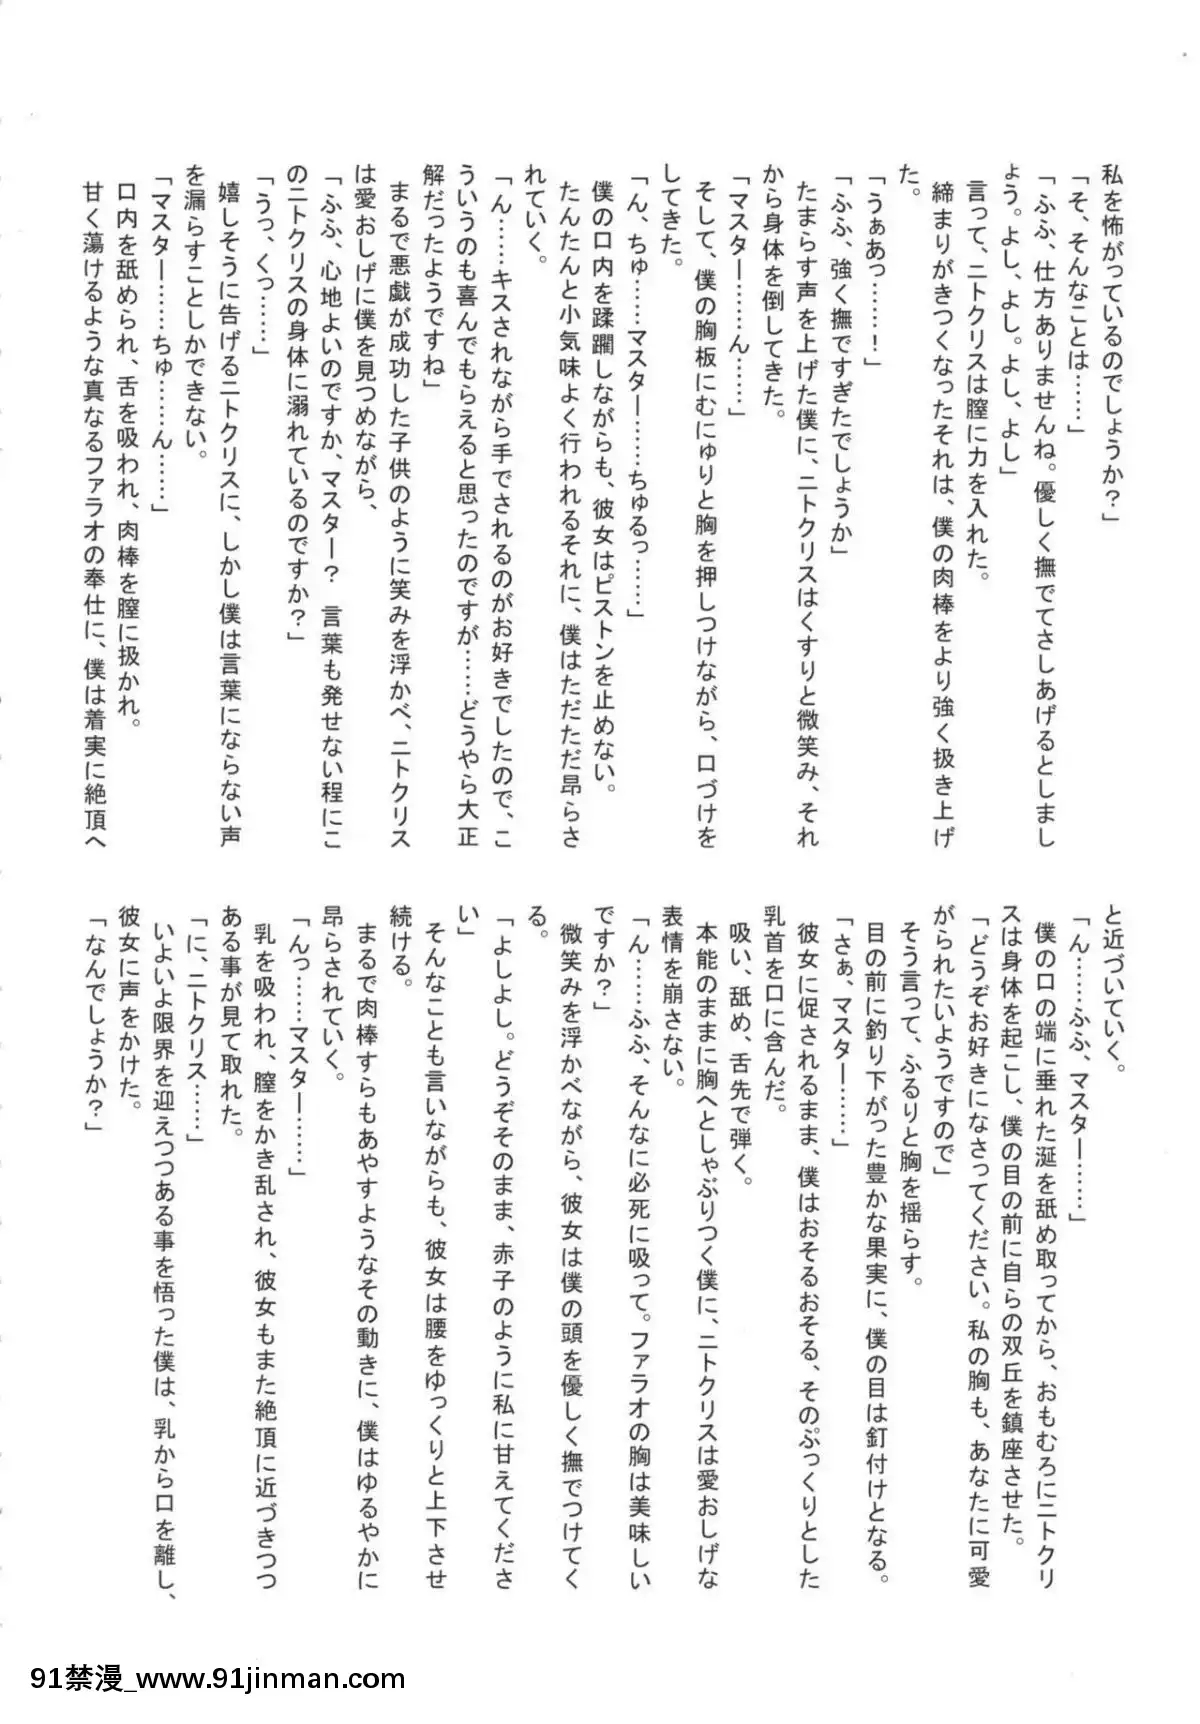 私を怖がっているのでしょうか？」
「そ、そんなことは……」
「ふふ、仕方ありませんね。優しく撫でてさしあげるとしまし
ょう。よし、よし。よし、よし」
言って、ニトクリスは膣に力を入れた。
締まりがきつくなったそれは、僕の肉棒をより強く扱き上げ
た。
「うぁあっ……！」
「ふふ、強く撫ですぎたでしょうか」
たまらず声を上げた僕に、ニトクリスはくすりと微笑み、それ
から身体を倒してきた。
「マスター……ん……」
そして、僕の胸板にむにゅりと胸を押しつけながら、口づけを
してきた。
「ん、ちゅ……マスター……ちゅるっ……」
僕の口内を蹂躙しながらも、彼女はピストンを止めない。
たんたんと小気味よく行われるそれに、僕はただただ昂らさ
れていく。
「ん……キスされながら手でされるのがお好きでしたので、こ
ういうのも喜んでもらえると思ったのですが……どうやら大正
解だったようですね」
まるで悪戯が成功した子供のように笑みを浮かべ、ニトクリス
は愛おしげに僕を見つめながら、
「ふふ、心地よいのですか、マスター？　言葉も発せない程にこ
のニトクリスの身体に溺れているのですか？」
「うっ、くっ……」
嬉しそうに告げるニトクリスに、しかし僕は言葉にならない声
を漏らすことしかできない。
「マスター……ちゅ……ん……」
口内を舐められ、舌を吸われ、肉棒を膣に扱かれ。
甘く蕩けるような真なるファラオの奉仕に、僕は着実に絶頂へ
と近づいていく。
「ん……ふふ、マスター……」
僕の口の端に垂れた涎を舐め取ってから、おもむろにニトクリ
スは身体を起こし、僕の目の前に自らの双丘を鎮座させた。
「どうぞお好きになさってください。私の胸も、あなたに可愛
がられたいようですので」
そう言って、ふるりと胸を揺らす。
目の前に釣り下がった豊かな果実に、僕の目は釘付けとなる。
「さぁ、マスター……」
彼女に促されるまま、僕はおそるおそる、そのぷっくりとした
乳首を口に含んだ。
吸い、舐め、舌先で弾く。
本能のままに胸へとしゃぶりつく僕に、ニトクリスは愛おしげな
表情を崩さない。
「ん……ふふ、そんなに必死に吸って。ファラオの胸は美味しい
ですか？」
微笑みを浮かべながら、彼女は僕の頭を優しく撫でつけてく
る。
「よしよし。どうぞそのまま、赤子のように私に甘えてくださ
い」
そんなことも言いながらも、彼女は腰をゆっくりと上下させ
続ける。
まるで肉棒すらもあやすようなその動きに、僕はゆるやかに
昂らされていく。
「んっ……マスター……」
乳を吸われ、膣をかき乱され、彼女もまた絶頂に近づきつつ
ある事が見て取れた。
「に、ニトクリス……」
いよいよ限界を迎えつつある事を悟った僕は、乳から口を離し、
彼女に声をかけた。
「なんでしょうか？」
91禁漫_www.91jinman.com